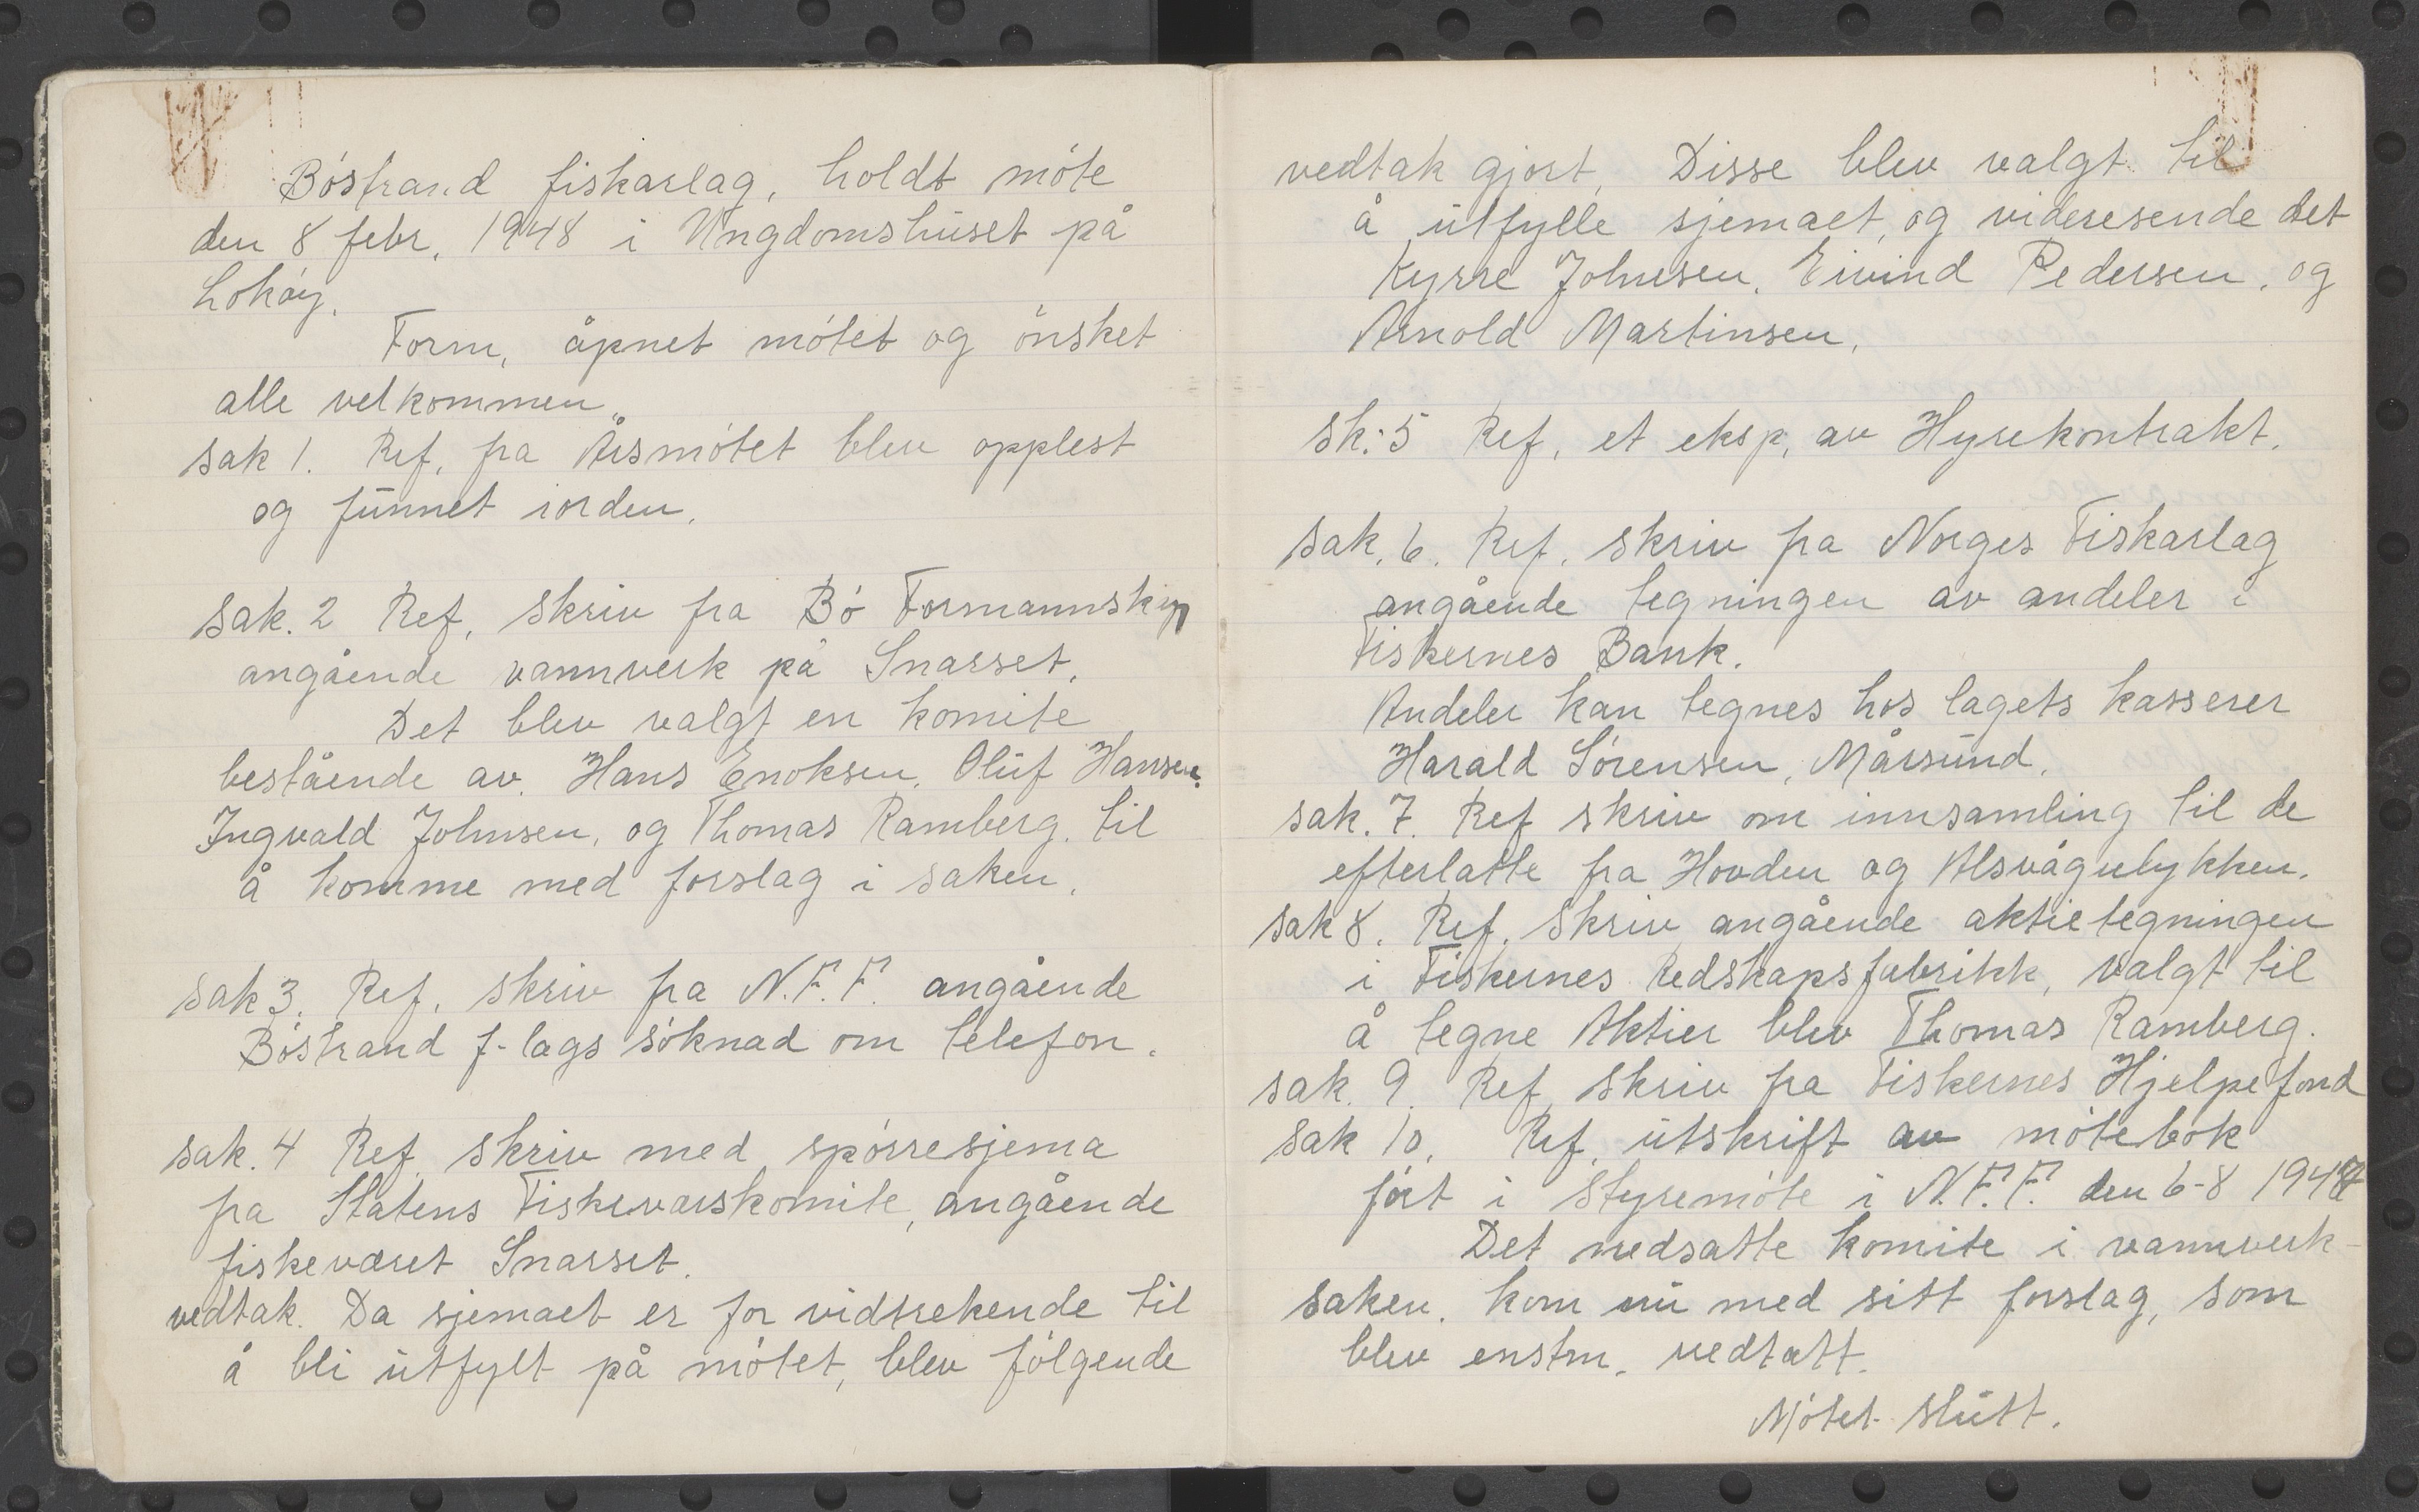 Bóstrand fiskarlag, holdt móte
den 8 febr. 1948 i Ungdomshuset på
Lokóy.
Form, åpnet mótet og ónsket
alle velkommen.
sak 1. Ref. fra Årsmótet blev opplest
og funnet iorden.
sak. 2 Ref. skriv fra Bó Formannskap
angående vannverk på Snarset.
Det blev valgt en komite
bestående av. Hans Enoksen, Oluf Hansen.
Ingvald Johnsen, og Thomas Ramberg. til
å komme med forslag i saken.
sak 3. Ref. skriv fra N.F.F. angående
Bóstrand f-lags sóknad om telefon.
sak. 4 Ref, skriv med spórresjema
fra Statens Fiskeværskomite, angående
fiskeværet Snarset.
vedtak. Da sjemaet er for vidtrekende til
å bli utfylt på mótet, blev fólgende
vedtak gjort, Disse blev valgt til
å utfylle sjemaet, og videresende det
Kyrre Johnsen, Eivind Pedersen, og
Arnold Martinsen.
sk: 5 Ref, et eksp, av Hyrekontrakt.
sak. 6. Ref. skriv fra Norges Fiskarlag
angående tegningen av andeler i
Fiskernes Bank.
Andeler kan tegnes hos lagets kasserer
Harald Sórensen, Mårsund.
sak. 7. Ref skriv om innsamling til de
efterlatte fra Hovden og Alsvågulykken.
sak 8. Ref. skriv angående aktietegningen
i Fiskernes Redskapsfabrikk, valgt til
å tegne Aktier blev Thomas Ramberg.
sak. 9. Ref, skriv fra Fiskernes Hjelpefond
sak 10. Ref, utskrift av mótebok
fórt i Styremóte i N.F.F. den 6-8 1947
Det nedsatte komite i vannverk-
saken. kom nu med sitt forslag, som
blev enstm. vedtatt.
Mótet slutt.